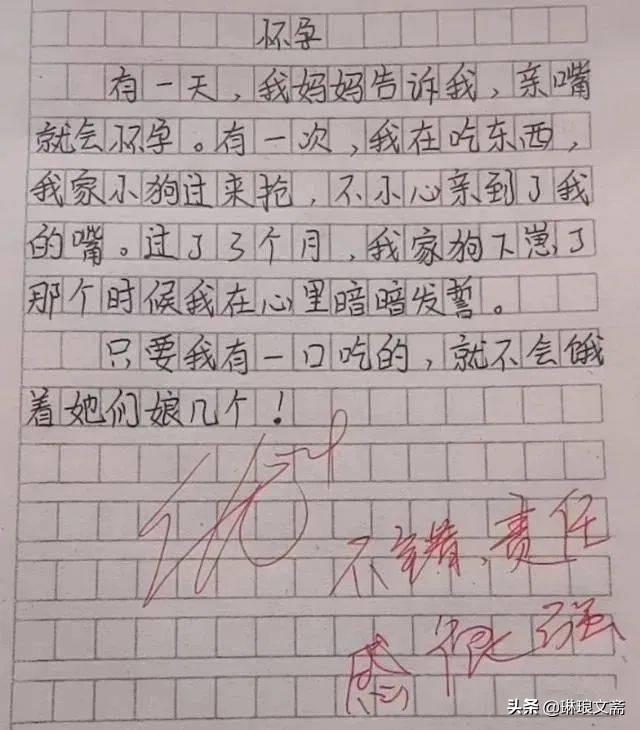 怀孕
有一天，我妈妈告诉我，亲嘴
就会怀孕。有一次，我在吃东西，
我家小狗过来抢，不小心亲到了我
的嘴。过了3个月，我家狗下崽了
那个时候我在心里暗暗发誓。
只要我有一口吃的，就不会饿
着她们娘几个！
不错，责任
感很强
头条@琳琅文斋